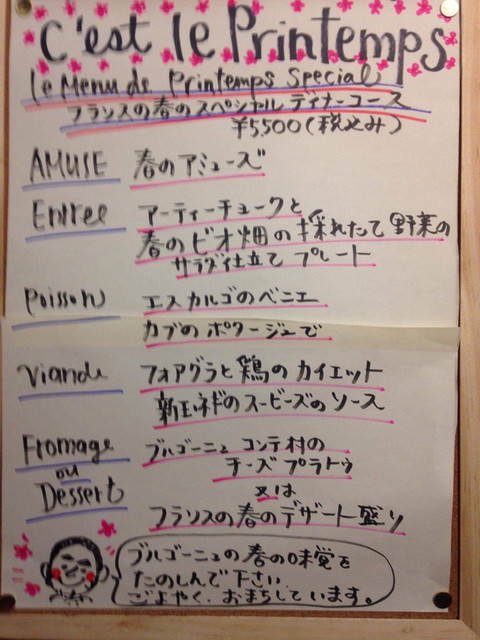 c'est le Printemps
le Menu de Printemps Special
フランスの春のスペシャルディナーコース
¥5500(税込み)
AMUSE 春のアミューズ
Entree アーティーチョークと
春のビオ畑の採れたて野菜の
サラダ仕立てプレート
Poisson エスカルゴのベニエ
カブのポタージュで
Viande フォアグラと鶏のカイエット
新玉ネギのスービーズのソース
Fromage ブルゴーニュ コンテ村の
チーズプラトゥ
ou
Dessert 又は
フランスの春のデザート盛り
ブルゴーニュの春の味覚を
たのしんで下さい
ごよやく、おまちしています。